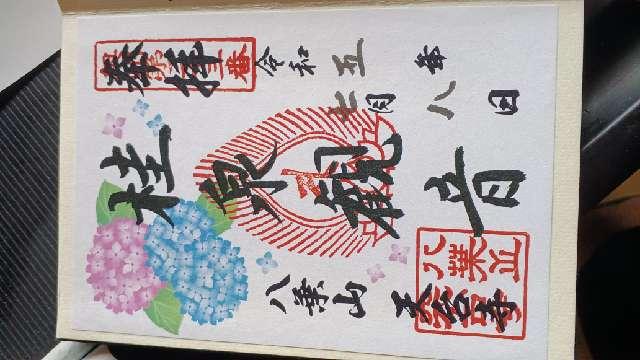 奉拝
桂泉観音
令和五年
七月八日
八葉山
天台寺